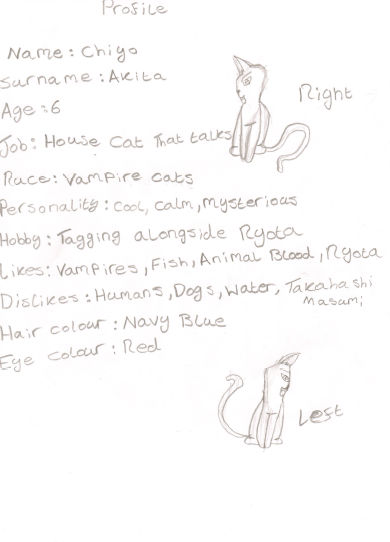 Profile
Name : Chiyo
Surname : Akita
Age : 6
Right
Job : House Cat That talks
Race : Vampire Cats
Personality : Cool, Calm, Mysterious
Hobby : Tagging alongside Ryota
Likes : Vampires, Fish, Animal Blood, Ryota
Dislikes : Humans, Dogs, Water, Takahashi
Masami
Hair colour : Navy Blue
Eye colour : Red
Left